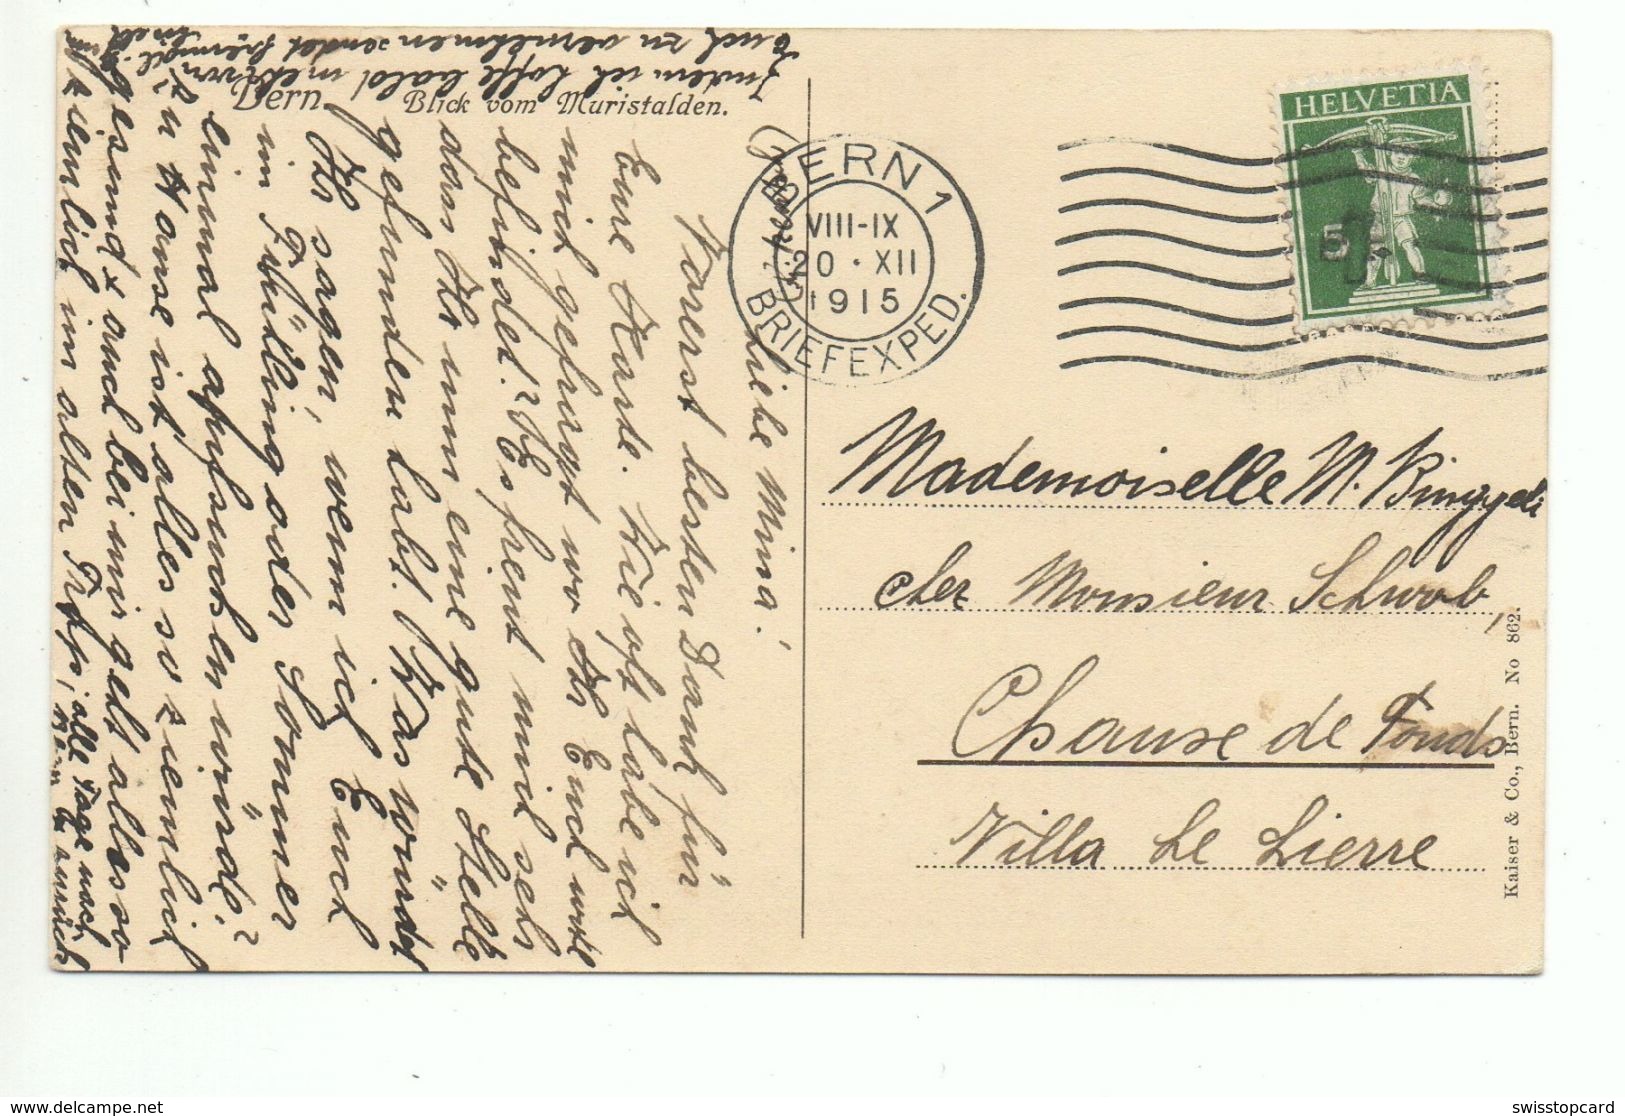 Bern
Blick vom Muristalden.
Liebe Mina!
Vorerst besten Dank für
Eure Karte. Wie oft habe ich
mich gefragt wo Ihr Euch wohl
befindet? Es freut mich sehr
dass Ihr nun eine gute Stelle
gefunden habt. Was würdet
Ihr sagen, wenn ich Euch
im Frühling oder Sommer
einmal aufsuchen würde?
zu Hause ist alles so ziemlich
gesund & auch bei mir geht alles so
ziemlich im alten Trapp, alle Tage nach
Bern & zurück
Indem ich hoffe bald mehr von
Euch zu vernehmen sendet
BERN 1
VIII-IX
20 · XII
1915
BRIEFEXPED.
HELVETIA
5
1
Mademoiselle M. Binggeli
chez Monsieur Schwab,
Chause de Fonds
Villa Le Lierre
Kaiser & Co., Bern. No 862.
www.delcampe.net
swisstopcard